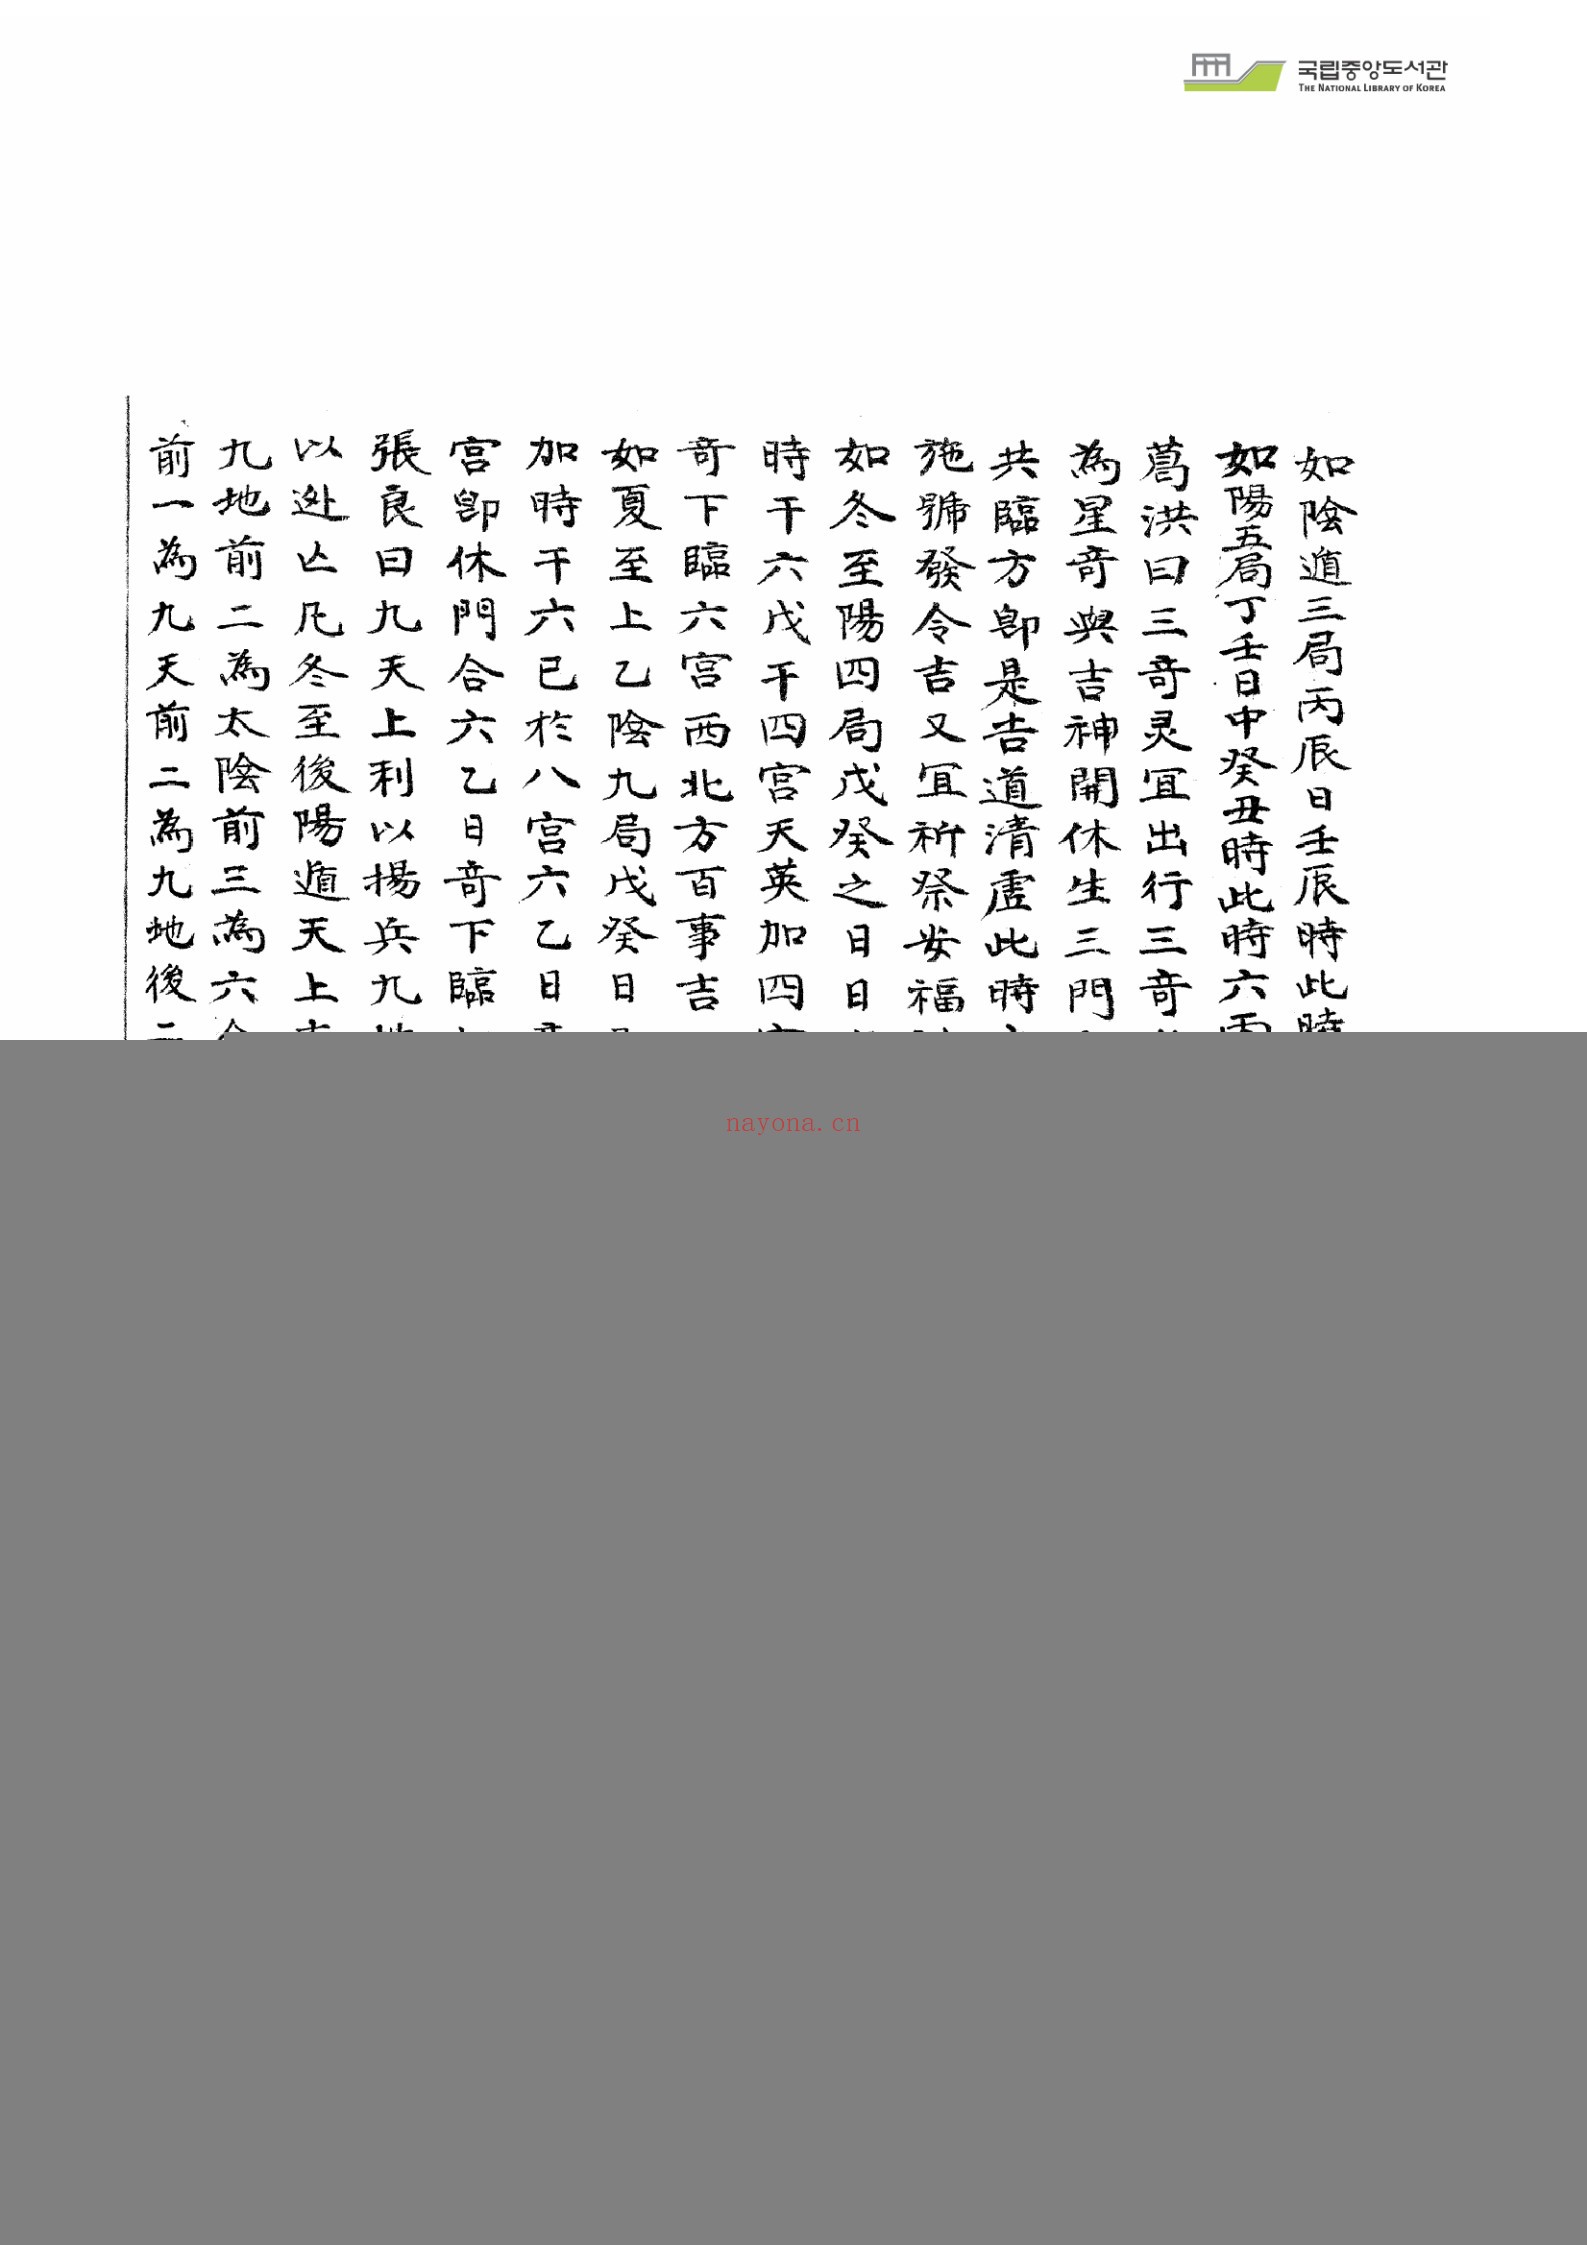 국립중앙도서관
THE NATIONAL LIBRARY OF KOREA
如陰遁三局丙辰日壬辰時此時
如陽五局丁壬日中癸丑時此時六丙
葛洪曰三奇灵宜出行三奇
為星奇與吉神開休生三門
共臨方卽是吉道清虛此時
施號發令吉又宜祈祭安福
如冬至陽四局戊癸之日日
時干六戊干四宮天英加四
奇下臨六宮西北方百事吉
如夏至上乙陰九局戊癸日
加時干六已於八宮六乙日
宮卽休門合六乙日奇下臨
張良曰九天上利以揚兵九
以迯亡凡冬至後陽遁天上
九地前二為太陰前三為六
前一為九天前二為九地後二
nayona.cn